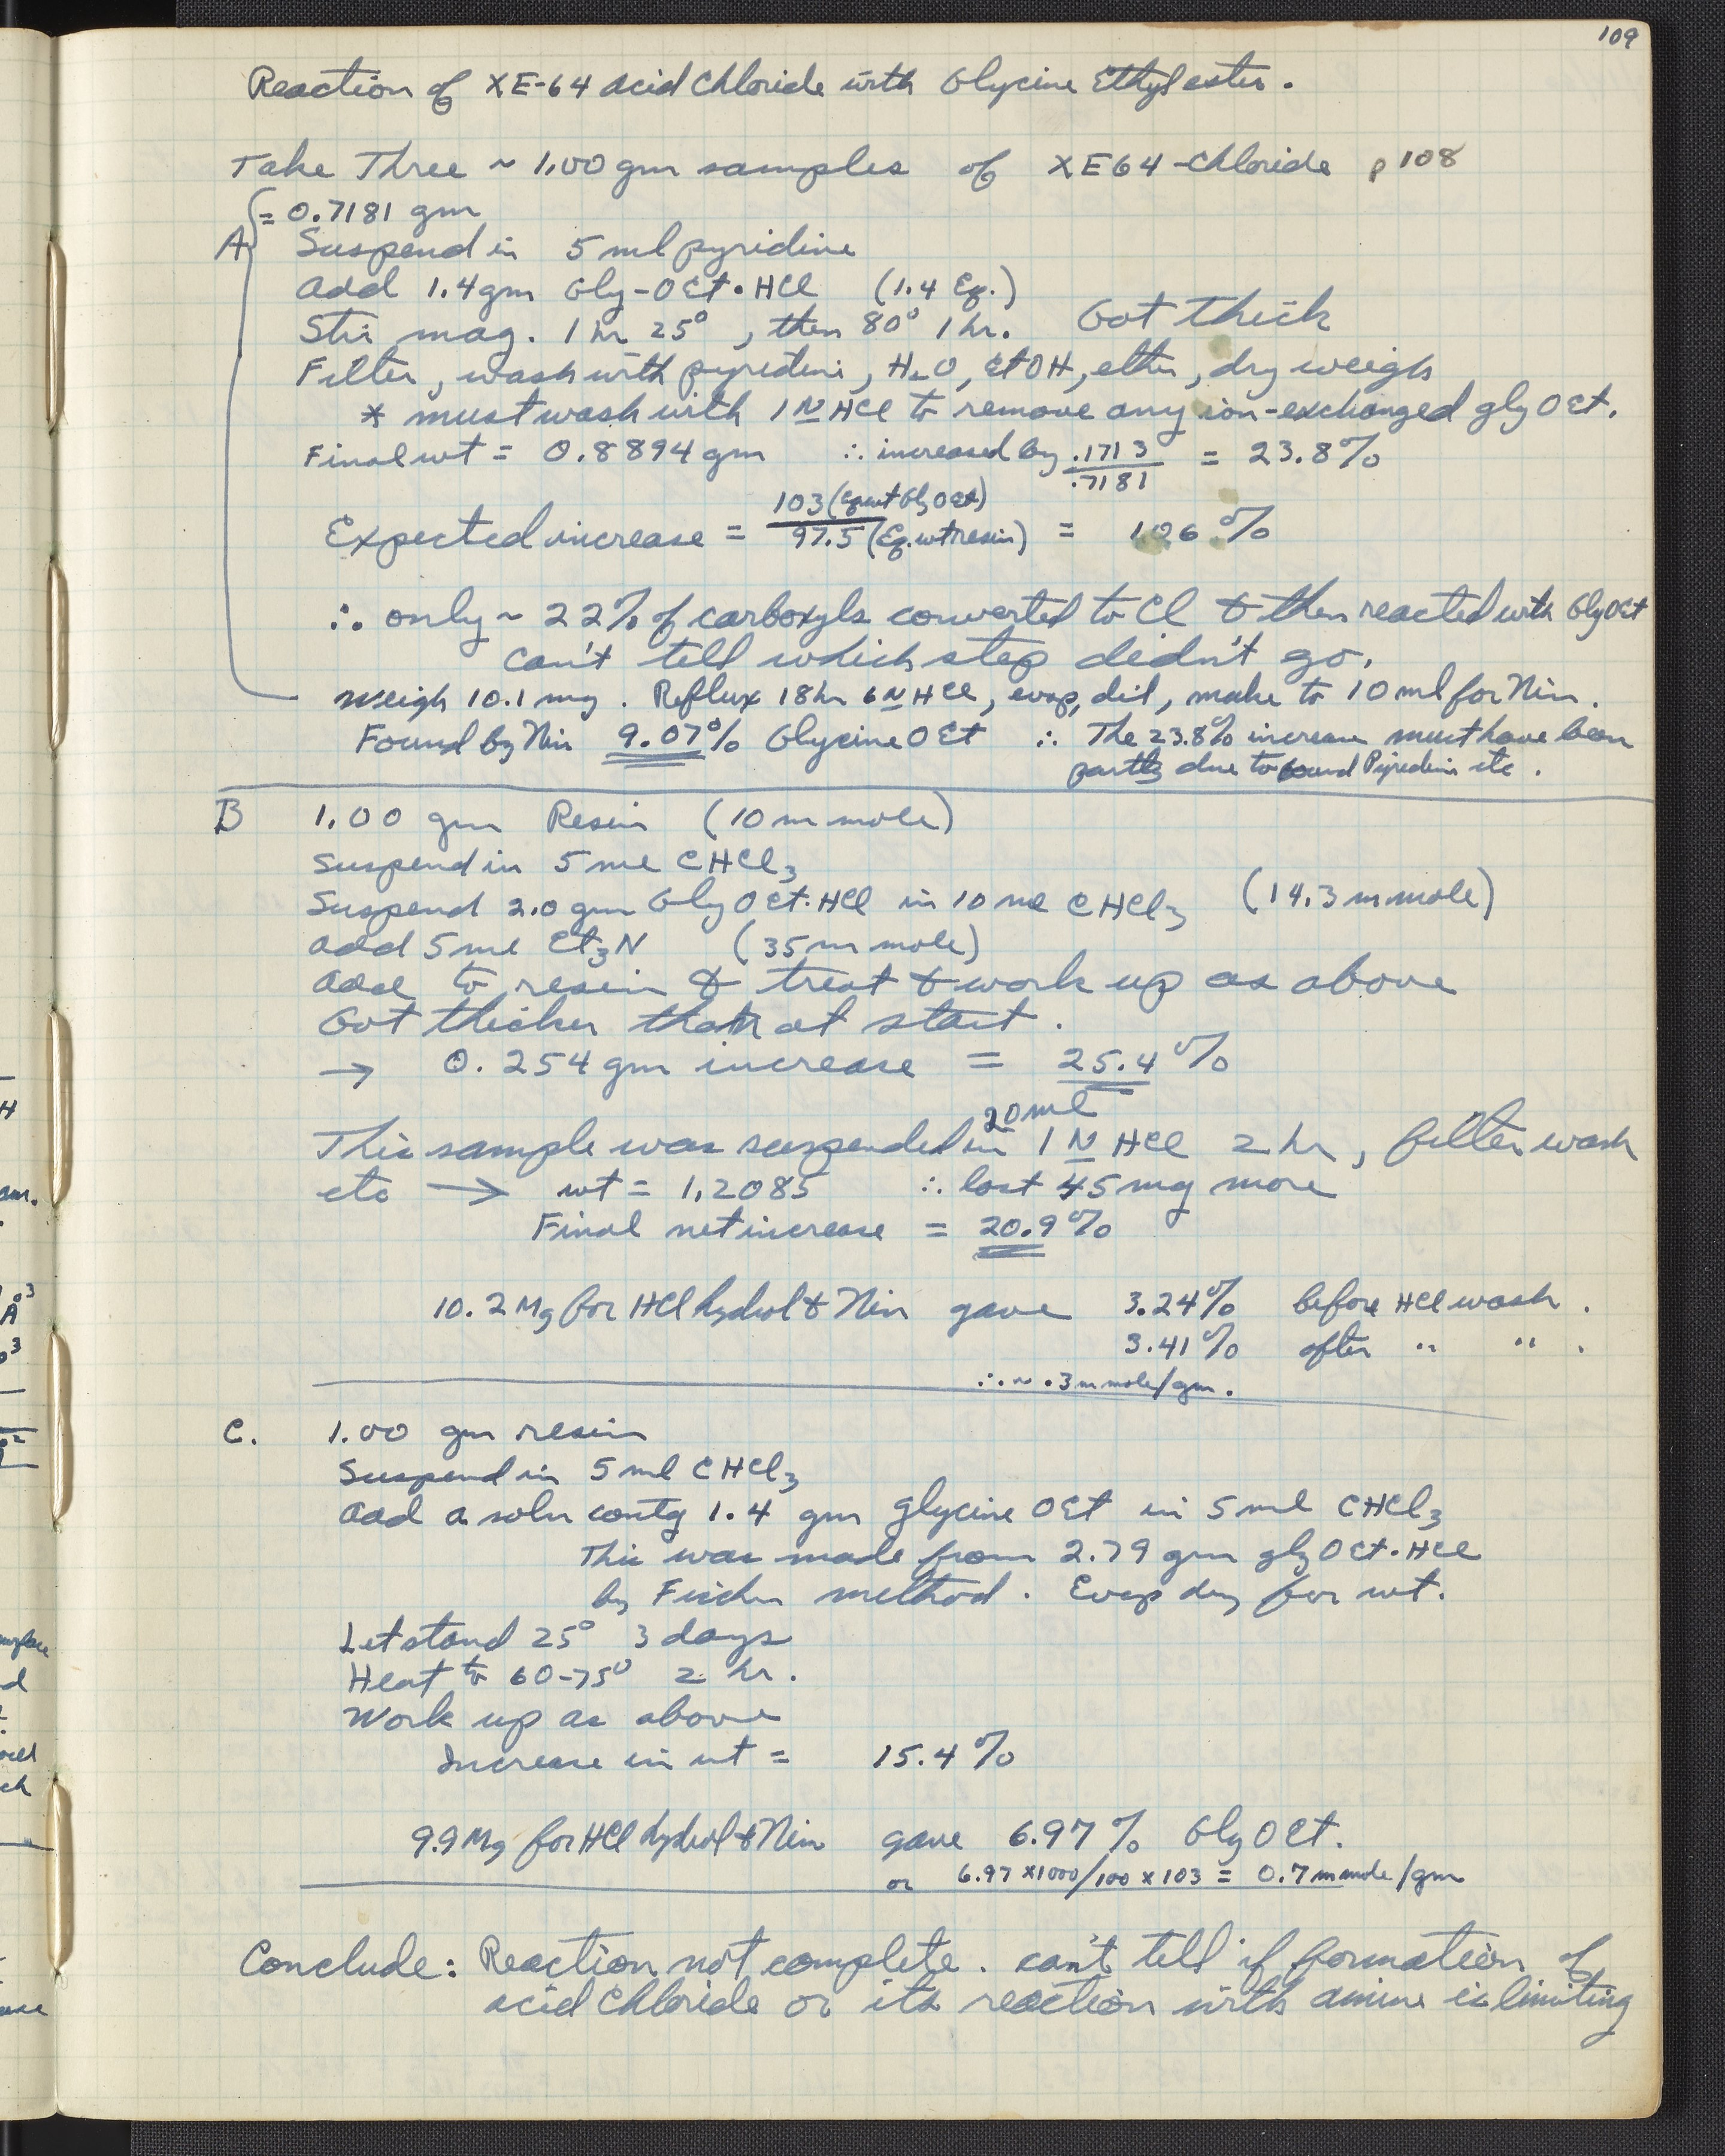 109
Reaction of XE-64 acid chloride with Glycine Ethyl ester.
Take Three ~ 1.00 gm samples of XE64-chloride p 108
= 0.7181 gm
A Suspend in 5 ml pyridine
Add 1.4 gm Gly-OEt·HCl (1.4 Eq.)
Stir mag. 1 hr 25°, then 80° 1 hr. Got thick
Filter, wash with pyridine, H2O, EtOH, ether, dry weigh
* must wash with 1 N HCl to remove any ion-exchanged gly OEt.
Final wt = 0.8894 gm ∴ increased by .1713/.7181 = 23.8%
Expected increase = 103 (Eq wt Gly OEt)/97.5 (Eq. wt resin) = 106%
∴ only ~ 22% of carboxyls converted to Cl & then reacted with Gly OEt
can't tell which step didn't go.
Weigh 10.1 mg. Reflux 18 hr 6 N HCl, evap, dil, make to 10 ml for Nin.
Found by Nin 9.07% Glycine OEt ∴ The 23.8% increase must have been
partly due to bound Pyridine etc.
B 1.00 gm Resin (10 m mole)
Suspend in 5 ml CHCl3
Suspend 2.0 gm Gly OEt·HCl in 10 ml CHCl3 (14.3 m mole)
Add 5 ml Et3N (35 m mole)
Add to resin & treat & work up as above
Got thicker than at start.
→ 0.254 gm increase = 25.4%
This sample was suspended in 20 ml 1 N HCl 2 hr, filter wash
etc → wt = 1.2085 ∴ lost 45 mg more
Final net increase = 20.9%
10.2 Mg for HCl hydrol & Nin gave 3.24% before HCl wash.
3.41% after " " .
∴ ~ .3 m mole/gm.
C. 1.00 gm resin
Suspend in 5 ml CHCl3
Add a soln contg 1.4 gm glycine OEt in 5 ml CHCl3
This was made from 2.79 gm gly OEt·HCl
by Fischer method. Evap dry for wt.
Let stand 25° 3 days
Heat to 60-75° 2 hr.
Work up as above
Increase in wt = 15.4%
9.9 Mg for HCl hydrol & Nin gave 6.97% Gly OEt.
or 6.97 x1000/100 x 103 = 0.7 m mole/gm
Conclude: Reaction not complete. can't tell if formation of
acid chloride or its reaction with amine is limiting